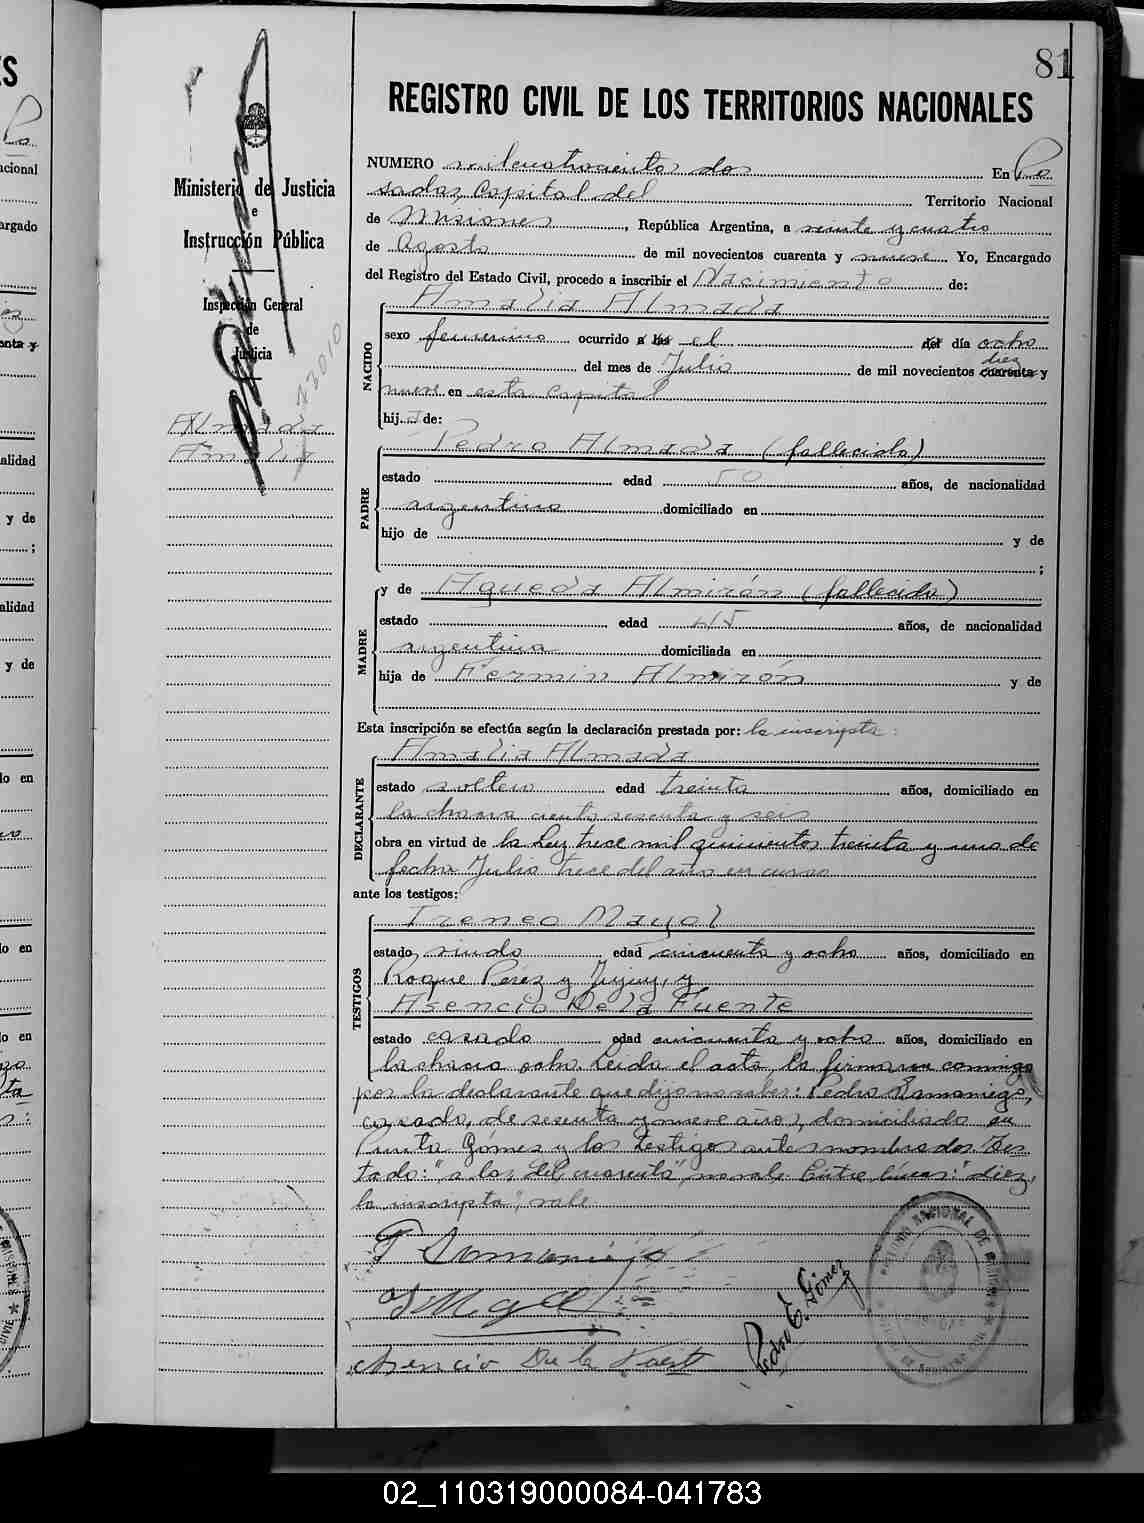 81
REGISTRO CIVIL DE LOS TERRITORIOS NACIONALES
Ministerio de Justicia
e
Instrucción Pública
Inspección General
de
Justicia
Almada
Amalia
NUMERO milcuatrocientos dos En Po
sadas, Capital del Territorio Nacional
de Misiones, República Argentina, a veinte y cuatro
de Agosto de mil novecientos cuarenta y nueve Yo, Encargado
del Registro del Estado Civil, procedo a inscribir el Nacimiento de:
NACIDO
Amalia Almada
sexo femenino ocurrido a las el del día ocho
diez
del mes de Julio de mil novecientos cuarenta y
nueve en esta Capital
hija de:
PADRE
Pedro Almada (fallecido)
estado edad 50 años, de nacionalidad
argentino domiciliado en
hijo de y de
;
MADRE
y de Agueda Almirón (fallecida)
estado edad 45 años, de nacionalidad
argentina domiciliada en
hija de Fermin Almirón y de
Esta inscripción se efectúa según la declaración prestada por: la inscripta:
DECLARANTE
Amalia Almada
estado soltera edad treinta años, domiciliado en
la chacra ciento sesenta y seis
obra en virtud de la Ley trece mil quinientos treinta y uno de
fecha Julio trece del año en curso
ante los testigos:
TESTIGOS
Ireneo Mayol
estado viudo edad cincuenta y ocho años, domiciliado en
Roque Perez y Jujuy, y
Asencio De la Fuente
estado casado edad cincuenta y ocho años, domiciliado en
la chacra ocho. Leida el acta, la firmaron conmigo
por la declarante que dijo no saber: Pedro Samaniego,
casado, de sesenta y nueve años, domiciliado en
Punta Gómez y los testigos antes nombrados. Tes
tado: "a las del cuarenta", no vale. Entre líneas: "diez,
la inscripta", vale
P Samaniego
Asencio De la Fuent
Pedro E. Gómez
02_110319000084-041783